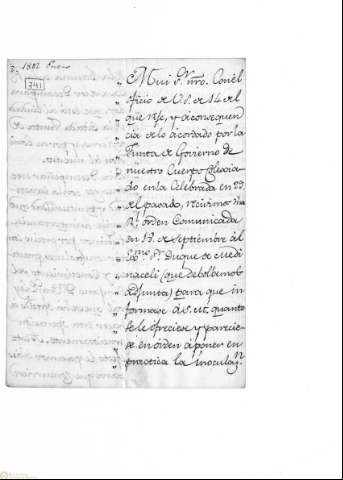 1802 Enero
741
Mui Sr. nro. Con el
oficio de V.S. de 14 del
que rije, y a consequen
cia de lo acordado por la
Junta de Govierno de
nuestro Cuerpo Colegia
do en la Celebrada en 22
del pasado, recivimos una
Rl. orden Comunicada
en 19 de Septiembre al
Exmo. Sr. Duque de Medi
naceli (que debolbemos
adjunta) para que in
formase á S.M. quanto
se le ofreciese y parecie
se en orden á poner en
practica la Inoculazn.